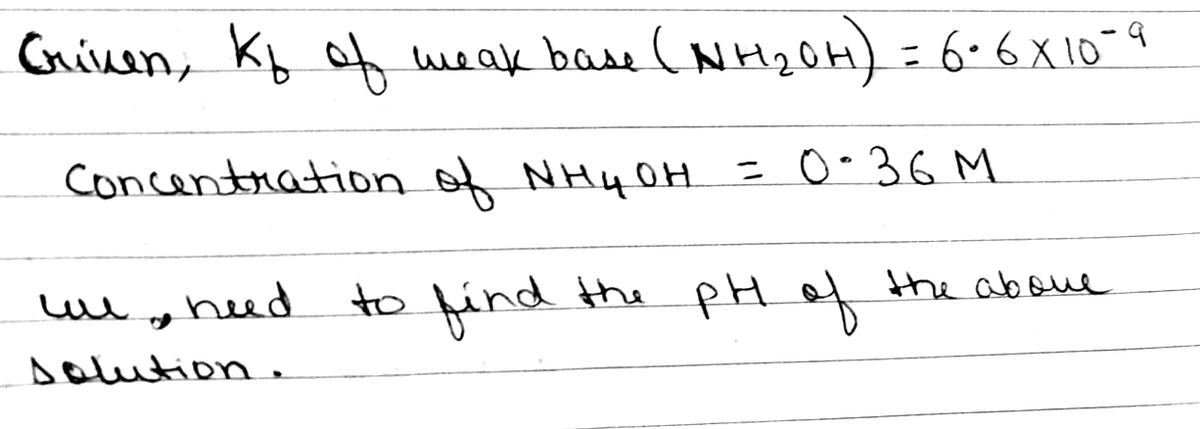 Given, Kb of weak base (NH2OH) = 6.6 X 10-9
Concentration of NH4OH = 0.36 M
we, need to find the pH of the above
solution.